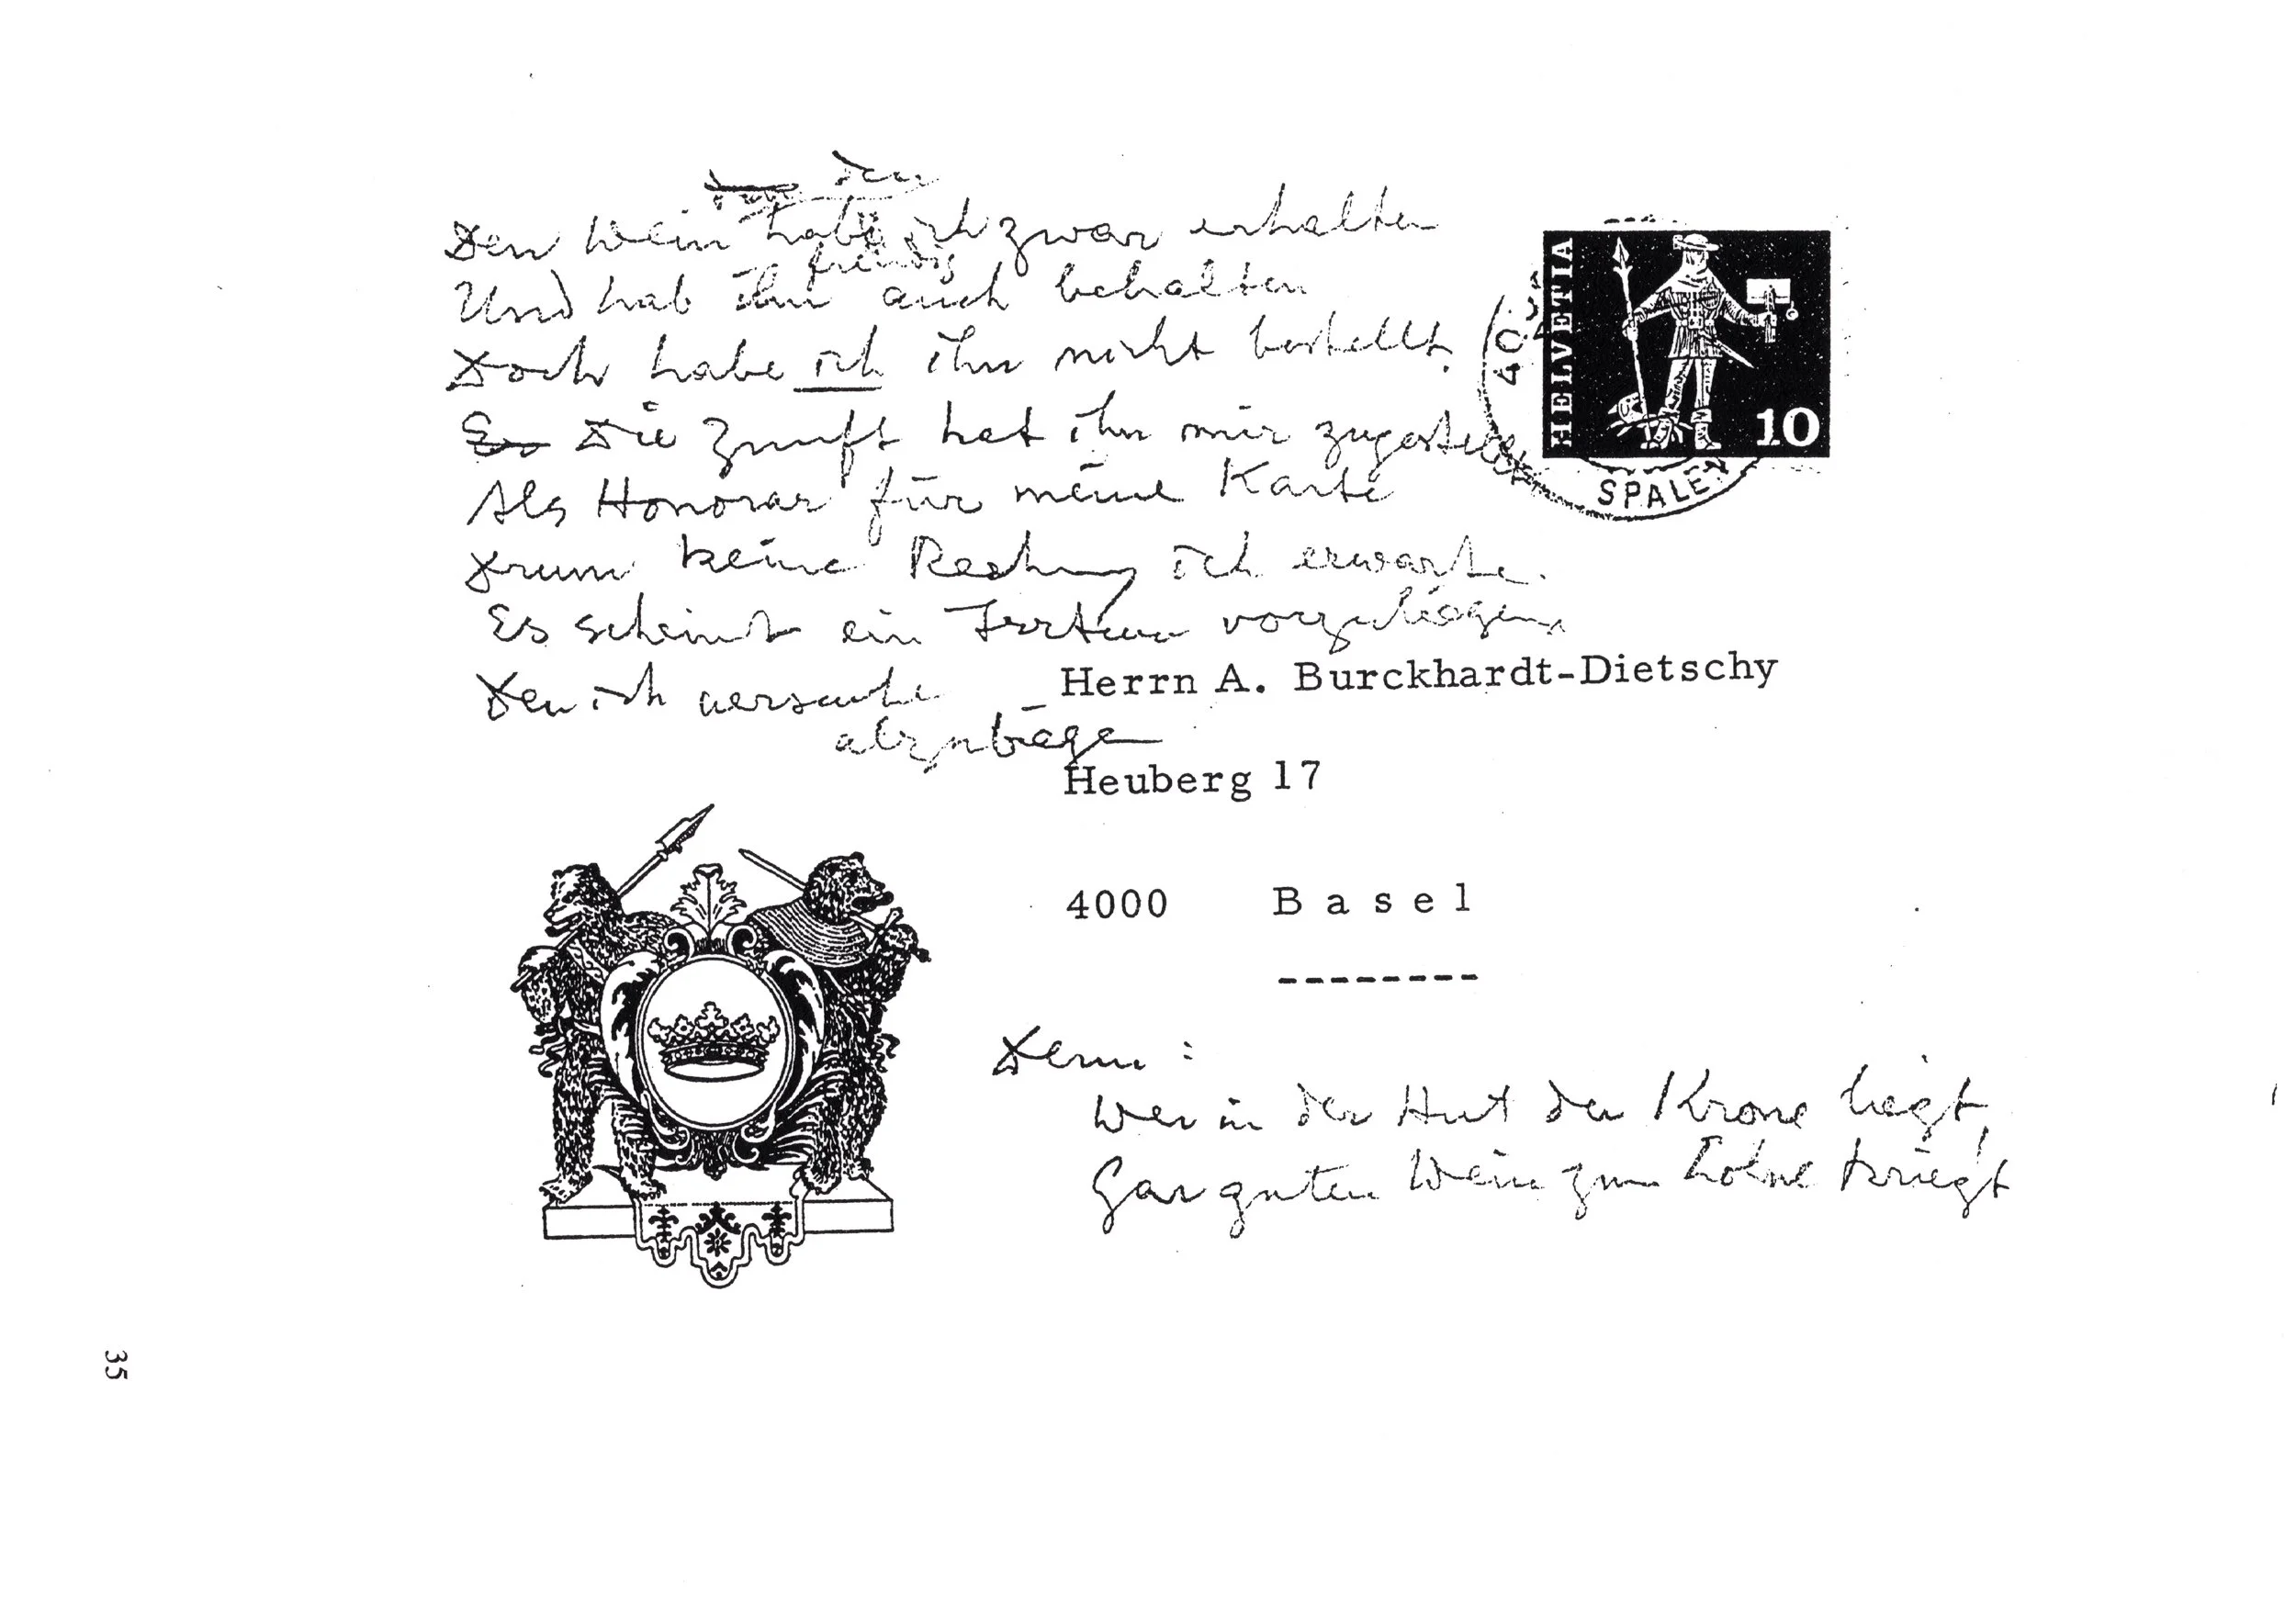 den
Den Wein hab ich zwar erhalten
freudig
Und hab ihn auch behalten
Doch habe ich ihn nicht bestellt.
Es Die Zunft hat ihn mir zugestellt
Als Honorar für meine Karte
Drum keine Rechnung ich erwarte.
Es scheint ein Irrtum vorzuliegen
Den ich versuche
abzubiegen
HELVETIA
10
SPALEN
Herrn A. Burckhardt-Dietschy
Heuberg 17
4000 Basel
--------
Denn:
Wer in der Hut der Krone liegt,
Gar guten Wein zum Lohne kriegt
35